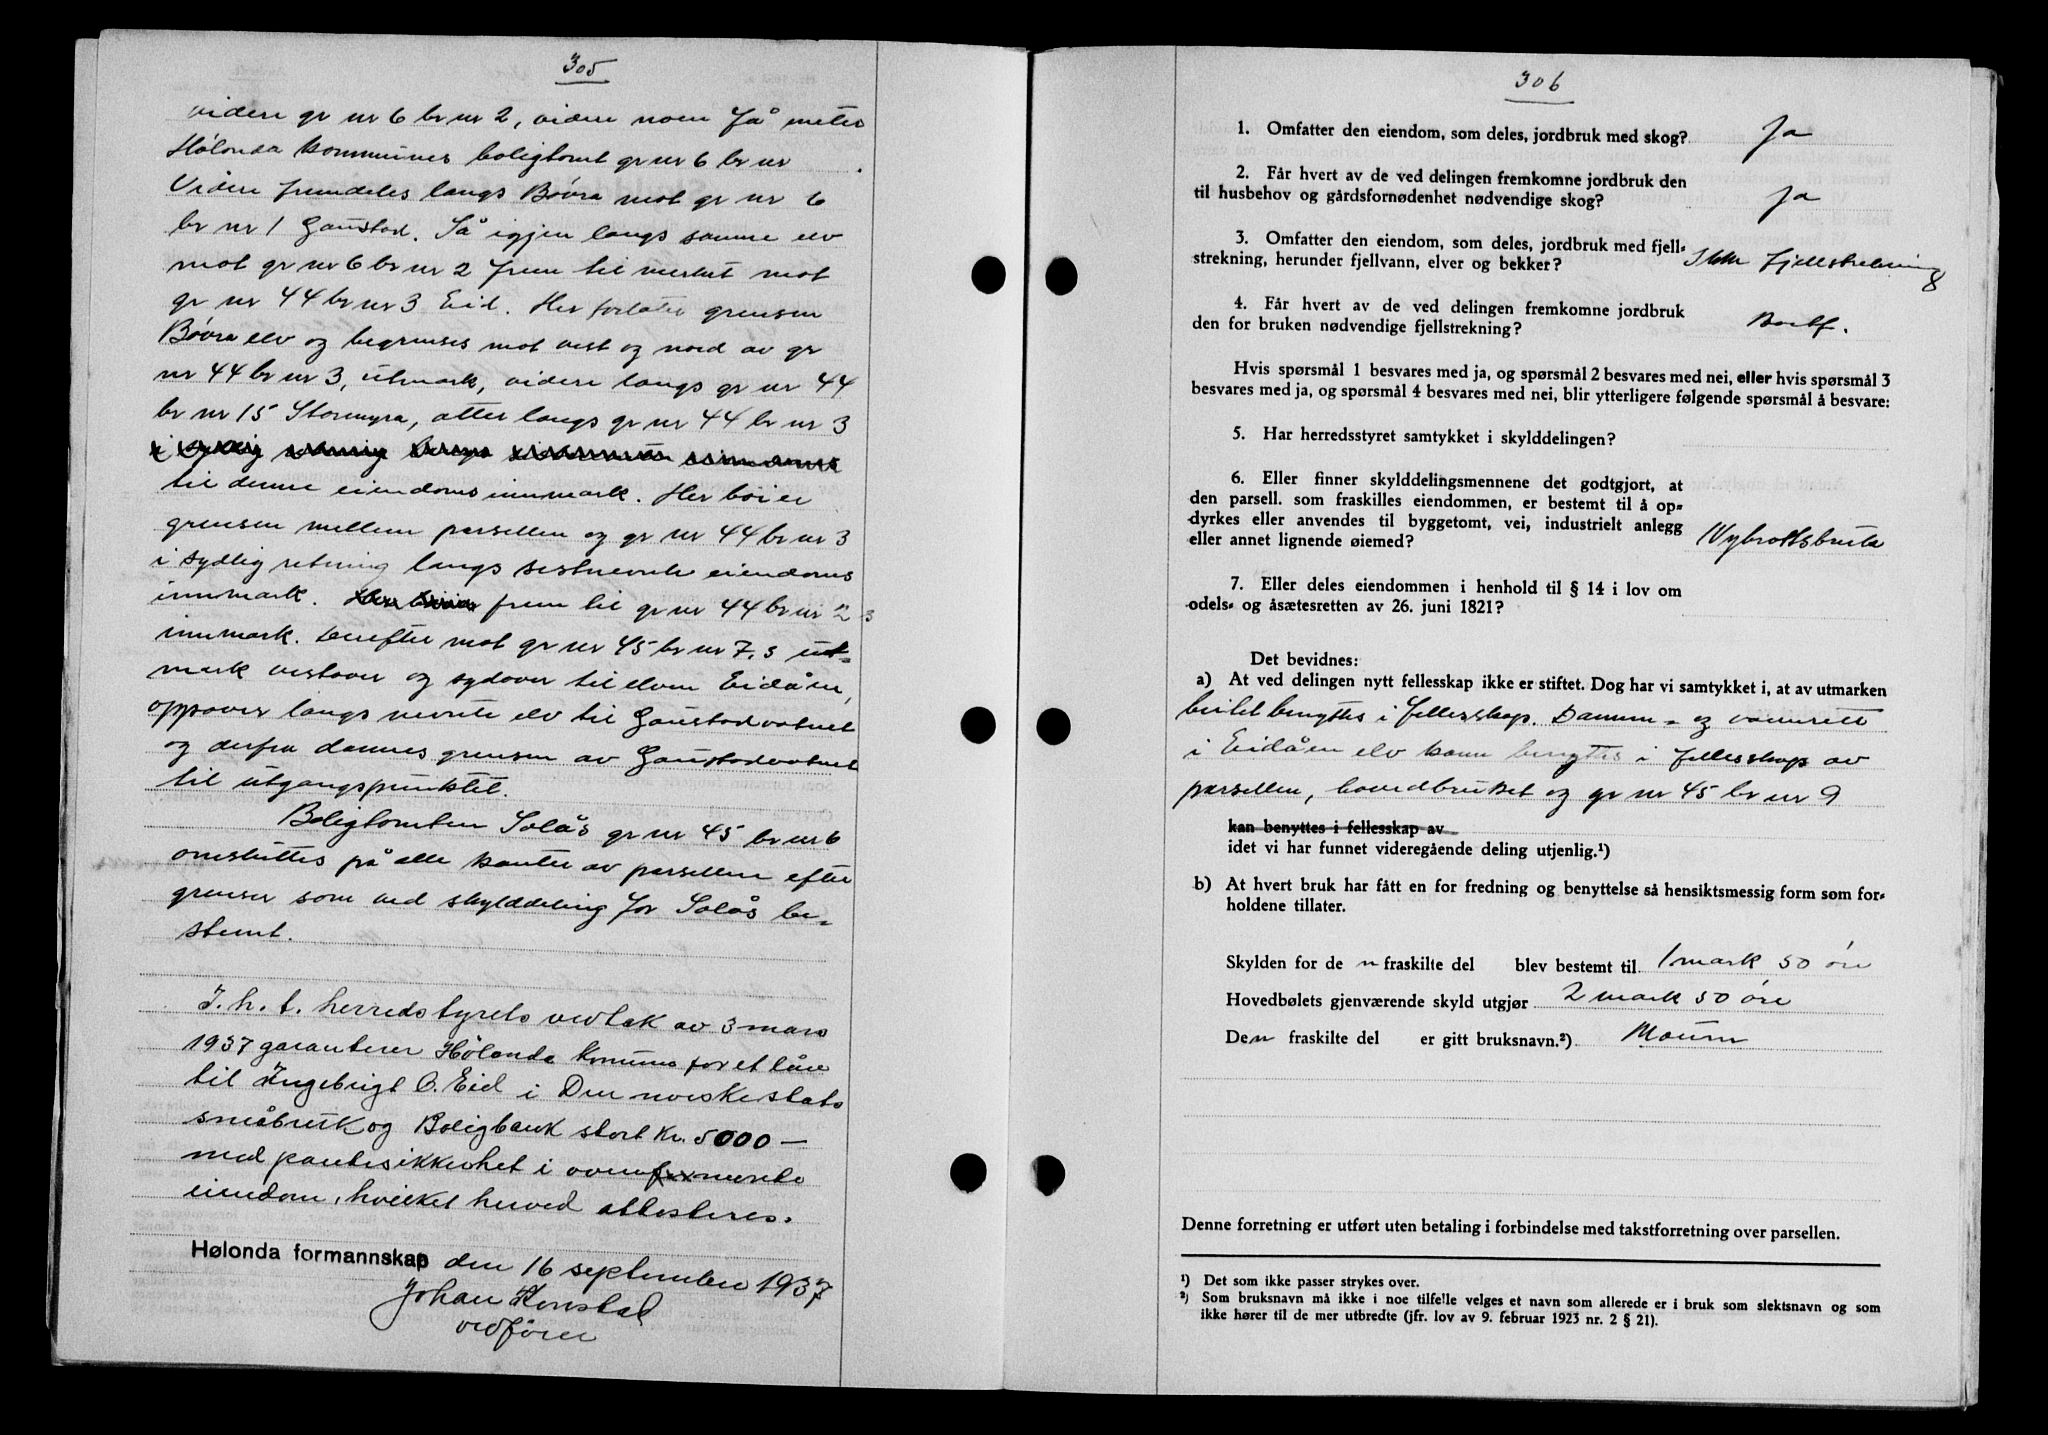 305
videre gr nr 6 br nr 2, videre noen få meter
Hølonda kommunes boligtomt gr nr 6 br nr .
Videre fremdeles langs Bøvra mot gr nr 6
br nr 1 Gaustad. Så igjen langs samme elv
mot gr nr 6 br nr 2 frem til merket mot
gr nr 44 br nr 3 Eid. Her forlater grensen
Bøvra elv og begrenses mot vest og nord av gr
nr 44 br nr 3, utmark, videre langs gr nr 44
br nr 15 Stormyra, atter langs gr nr 44 br nr 3
i sydlig retning langs
til denne eiendoms innmark. Her bøier
grensen mellem parsellen og gr nr 44 br nr 3
i sydlig retning langs sistnevnte eiendoms
innmark. Her bøier frem til gr nr 44 br nr 2
innmark. Derefter mot gr nr 45 br nr 7.s ut-
mark vestover og sydover til elven Eidåen,
oppover langs nevnte elv til Gaustadvatnet
og derfra dannes grensen av Gaustadvatnet
til utgangspunktet.
Boligtomten Solås gr nr 45 br nr 6
omsluttes på alle kanter av parsellen efter
grenser som ved skylddeling for Solås be-
stemt.
I.h.t. herredstyrets vedtak av 3 mars
1937 garanterer Hølonda komune for et lån
til Ingebrigt O. Eid i Den norske stats
småbruk og Boligbank stort kr. 5000 —
med pantesikkerhet i ovenfornevnte
eiendom, hvilket herved attesteres.
Hølonda formannskap den 16 september 1937
Johan Konstad
ordfører
306
1. Omfatter den eiendom, som deles, jordbruk med skog? Ja
2. Får hvert av de ved delingen fremkomne jordbruk den
til husbehov og gårdsfornødenhet nødvendige skog? Ja
3. Omfatter den eiendom, som deles, jordbruk med fjell-
strekning, herunder fjellvann, elver og bekker? Ikke fjellstrekning
4. Får hvert av de ved delingen fremkomne jordbruk
den for bruken nødvendige fjellstrekning? Bortf.
Hvis spørsmål 1 besvares med ja, og spørsmål 2 besvares med nei, eller hvis spørsmål 3
besvares med ja, og spørsmål 4 besvares med nei, blir ytterligere følgende spørsmål å besvare:
5. Har herredsstyret samtykket i skylddelingen?
6. Eller finner skylddelingsmennene det godtgjort, at
den parsell. som fraskilles eiendommen, er bestemt til å op-
dyrkes eller anvendes til byggetomt, vei, industrielt anlegg
eller annet lignende øiemed? Nybrottsbruk
7. Eller deles eiendommen i henhold til § 14 i lov om
odels- og åsætesretten av 26. juni 1821?
Det bevidnes:
a) At ved delingen nytt fellesskap ikke er stiftet. Dog har vi samtykket i, at av utmarken
beitet benyttes i fellesskap. Damm- og vannrett
i Eidåen elv kann benyttes i fellesskap av
parsellen, hovedbruket og gr nr 45 br nr 9
kan benyttes i fellesskap av
idet vi har funnet videregående deling utjenlig.¹)
b) At hvert bruk har fått en for fredning og benyttelse så hensiktsmessig form som for-
holdene tillater.
Skylden for de n fraskilte del blev bestemt til 1 mark 50 øre
Hovedbølets gjenværende skyld utgjør 2 mark 50 øre
Den fraskilte del er gitt bruksnavn.²) Moum
Denne forretning er utført uten betaling i forbindelse med takstforretning over parsellen.
¹) Det som ikke passer strykes over.
²) Som bruksnavn må ikke i noe tilfelle velges et navn som allerede er i bruk som slektsnavn og som
ikke hører til de mer utbredte (jfr. lov av 9. februar 1923 nr. 2 § 21).